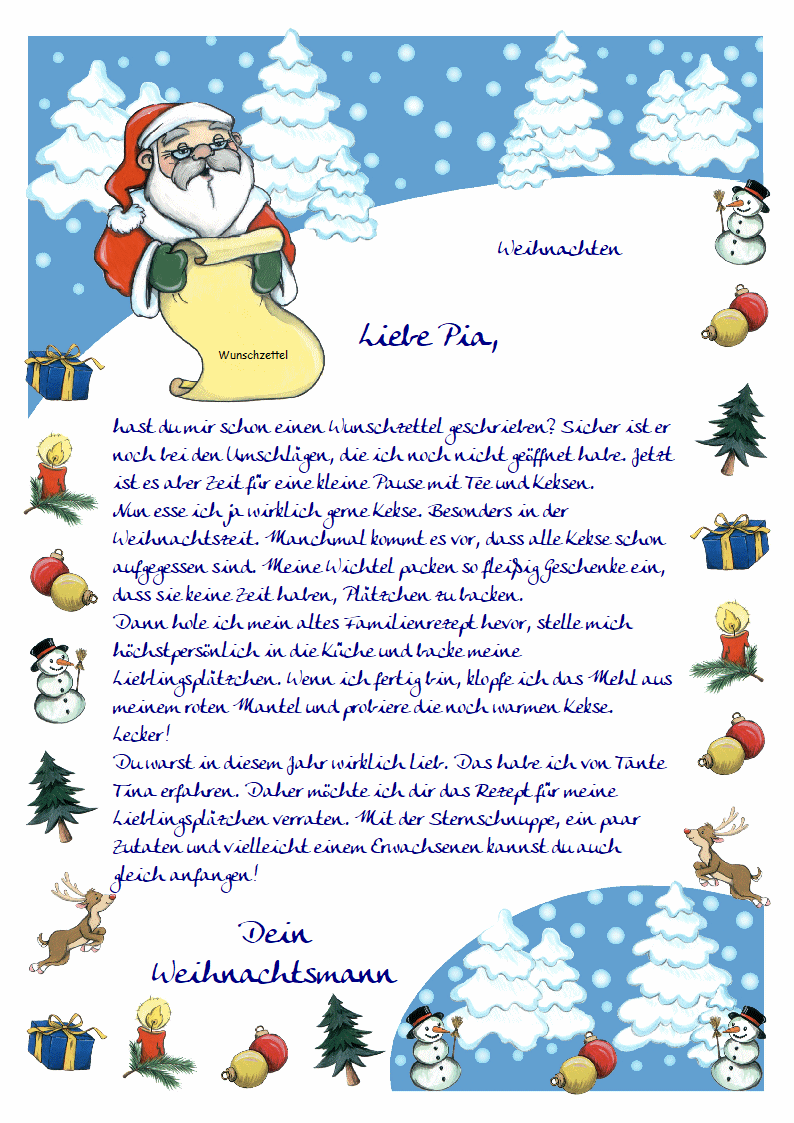 Weihnachten
Wunschzettel
Liebe Pia,
hast du mir schon einen Wunschzettel geschrieben? Sicher ist er
noch bei den Umschlägen, die ich noch nicht geöffnet habe. Jetzt
ist es aber Zeit für eine kleine Pause mit Tee und Keksen.
Nun esse ich ja wirklich gerne Kekse. Besonders in der
Weihnachtszeit. Manchmal kommt es vor, dass alle Kekse schon
aufgegessen sind. Meine Wichtel packen so fleißig Geschenke ein,
dass sie keine Zeit haben, Plätzchen zu backen.
Dann hole ich mein altes Familienrezept hevor, stelle mich
höchstpersönlich in die Küche und backe meine
Lieblingsplätzchen. Wenn ich fertig bin, klopfe ich das Mehl aus
meinem roten Mantel und probiere die noch warmen Kekse.
Lecker!
Du warst in diesem Jahr wirklich lieb. Das habe ich von Tante
Tina erfahren. Daher möchte ich dir das Rezept für meine
Lieblingspläzchen verraten. Mit der Sternschnuppe, ein paar
Zutaten und vielleicht einem Erwachsenen kannst du auch
gleich anfangen!
Dein
Weihnachtsmann